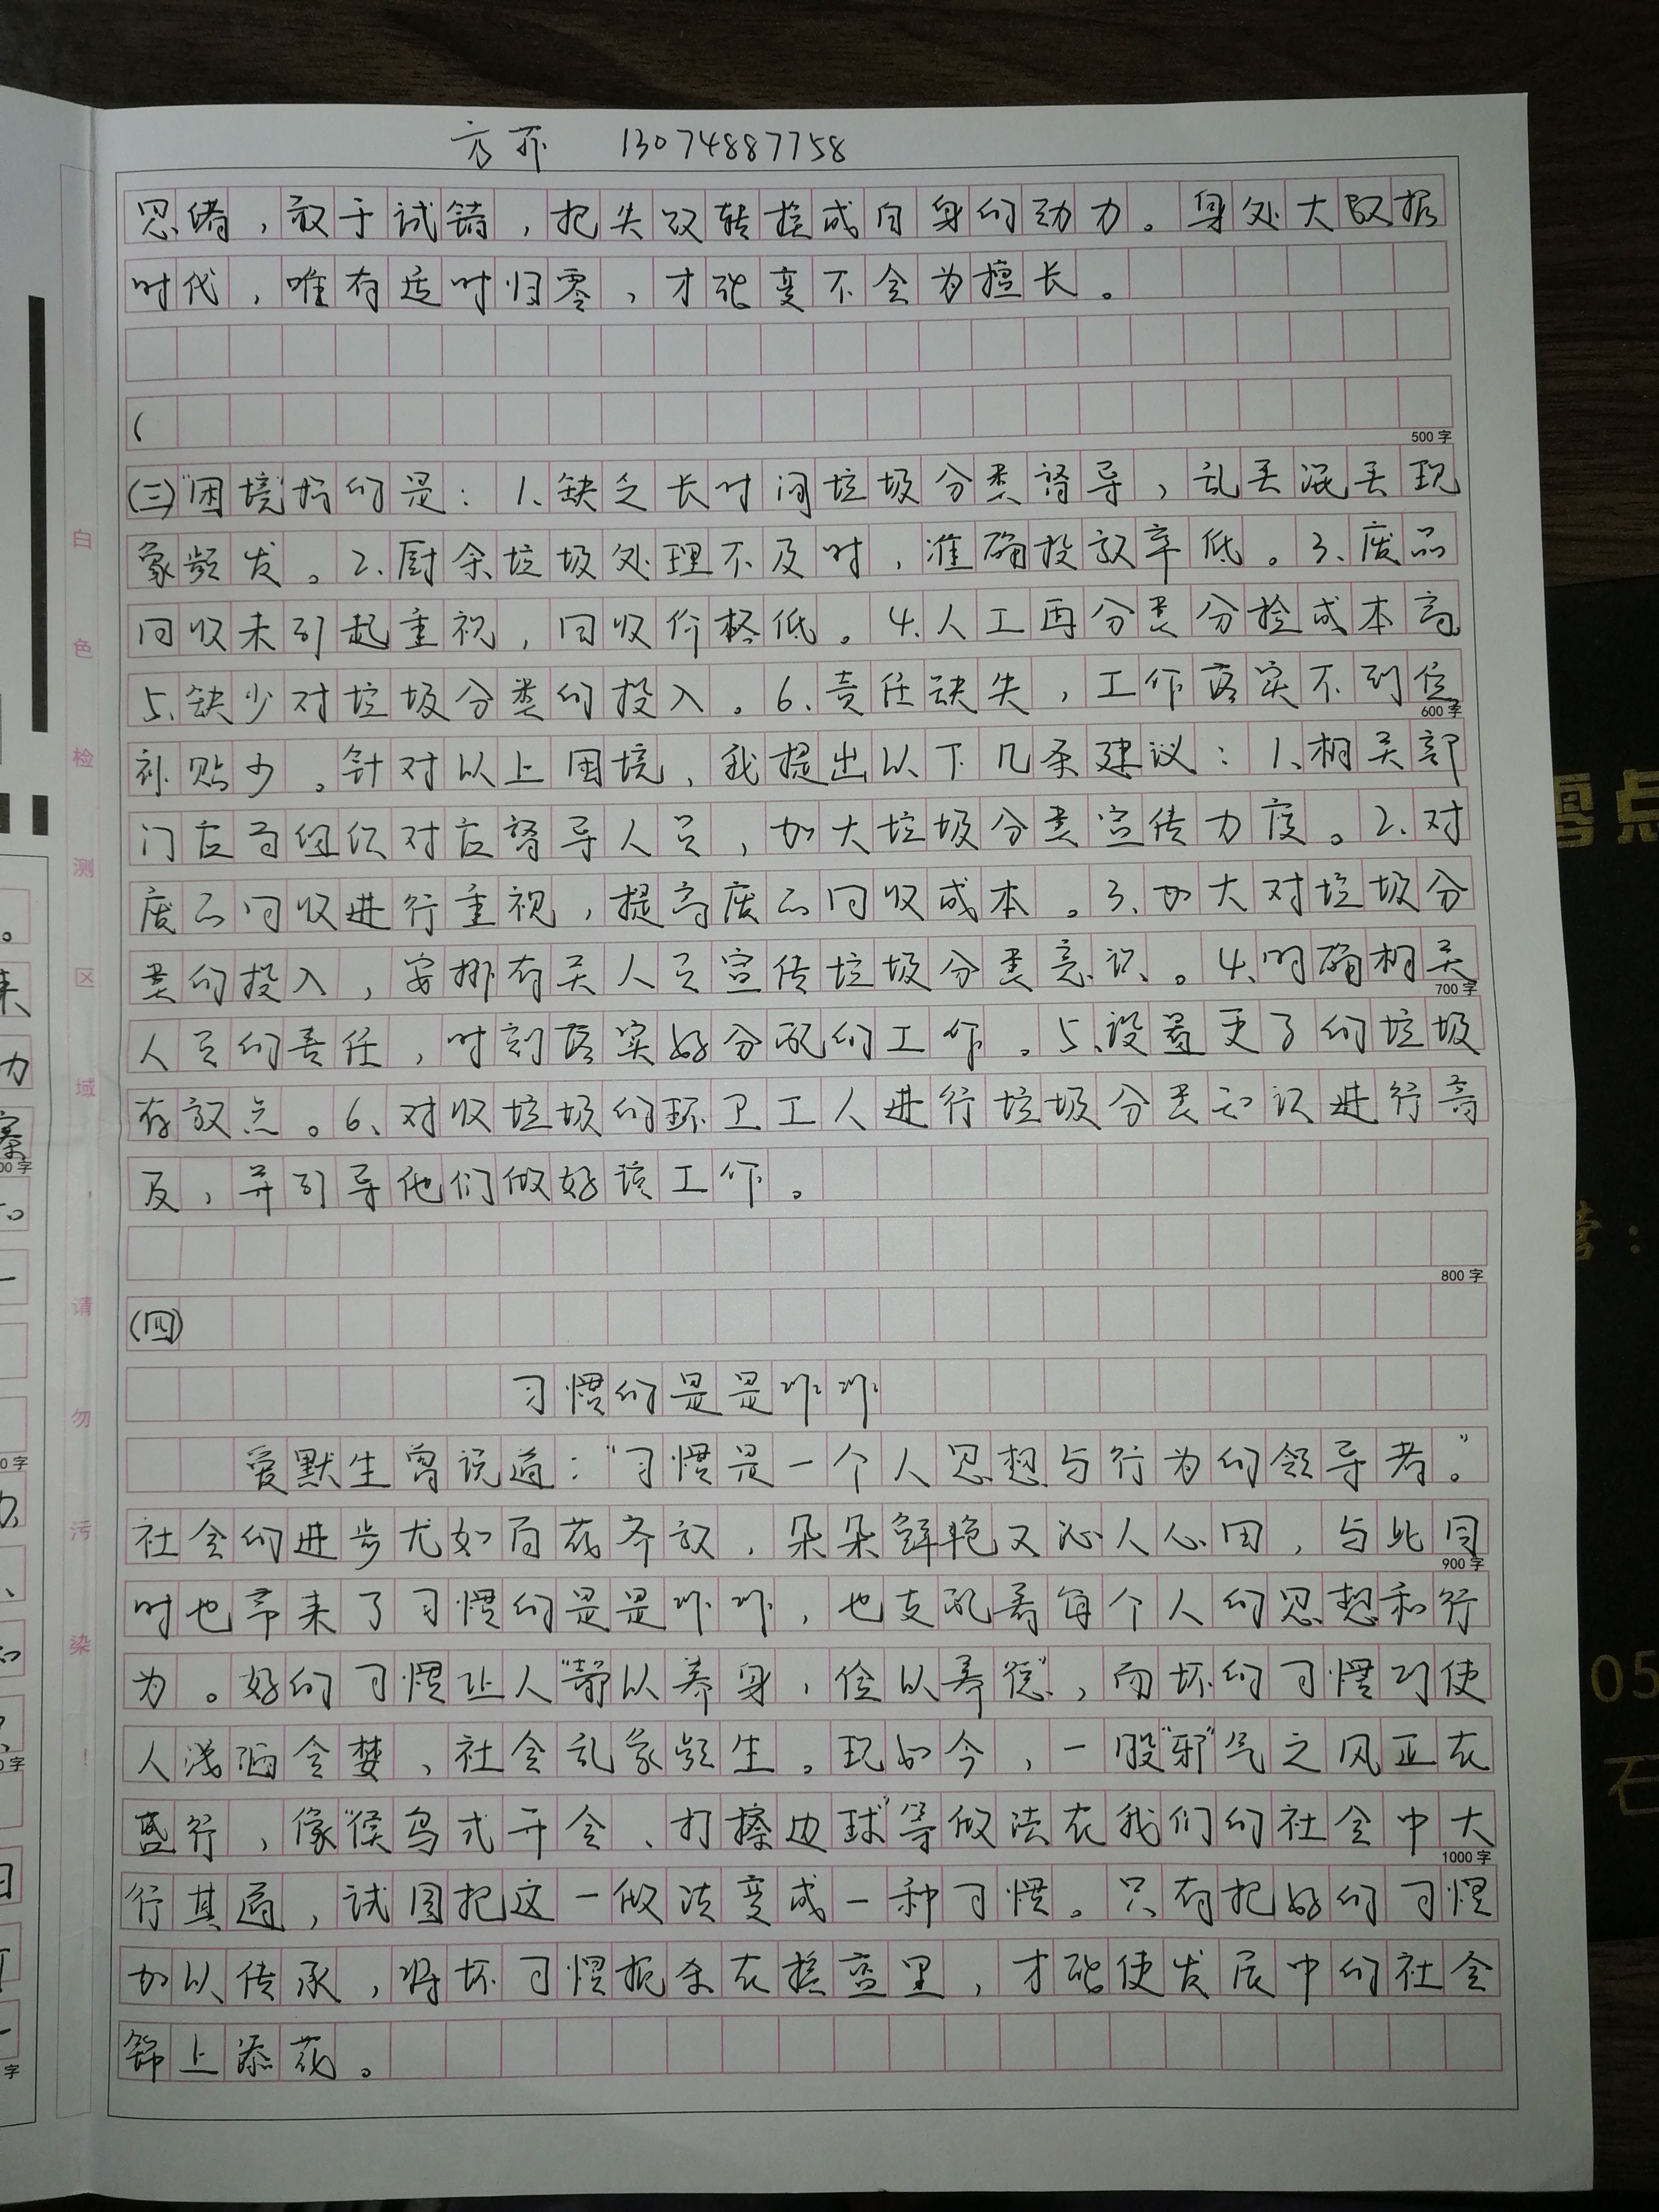 方 13074887758
思绪，敢于试错，把失败转换成自身的动力。身处大数据
时代，唯有适时归零，才能变不会为擅长。
（
500字
(三)"困境"指的是：1.缺乏长时间垃圾分类督导，乱丢混丢现
象频发。2.厨余垃圾处理不及时，准确投放率低。3.废品
回收未引起重视，回收价格低。4.人工再分类分捡成本高
5.缺少对垃圾分类的投入。6.责任缺失，工作落实不到位
600字
补贴少。针对以上困境，我提出以下几条建议：1.相关部
门应当组织对应督导人员，加大垃圾分类宣传力度。2.对
废品回收进行重视，提高废品回收成本。3.加大对垃圾分
类的投入，安排有关人员宣传垃圾分类意识。4.明确相关
700字
人员的责任，时刻落实好分配的工作。5.设置更多的垃圾
存放点。6.对收垃圾的环卫工人进行垃圾分类知识进行普
及，并引导他们做好该工作。
800字
(四)
习惯的是是非非
爱默生曾说道："习惯是一个人思想与行为的领导者。"
社会的进步尤如百花齐放，朵朵鲜艳又沁人心田，与此同
900字
时也带来了习惯的是是非非，也支配着每个人的思想和行
为。好的习惯让人"静以养身，俭以养德"，而坏的习惯巧使
人浅陋贪婪，社会乱象频生。现如今，一股"邪"气之风正在
盛行，像"候鸟式开会、打擦边球"等做法在我们的社会中大
1000字
行其道，试图把这一做法变成一种习惯。只有把好的习惯
加以传承，将坏习惯扼杀在摇篮里，才能使发展中的社会
锦上添花。
白色检测区域请勿污染！